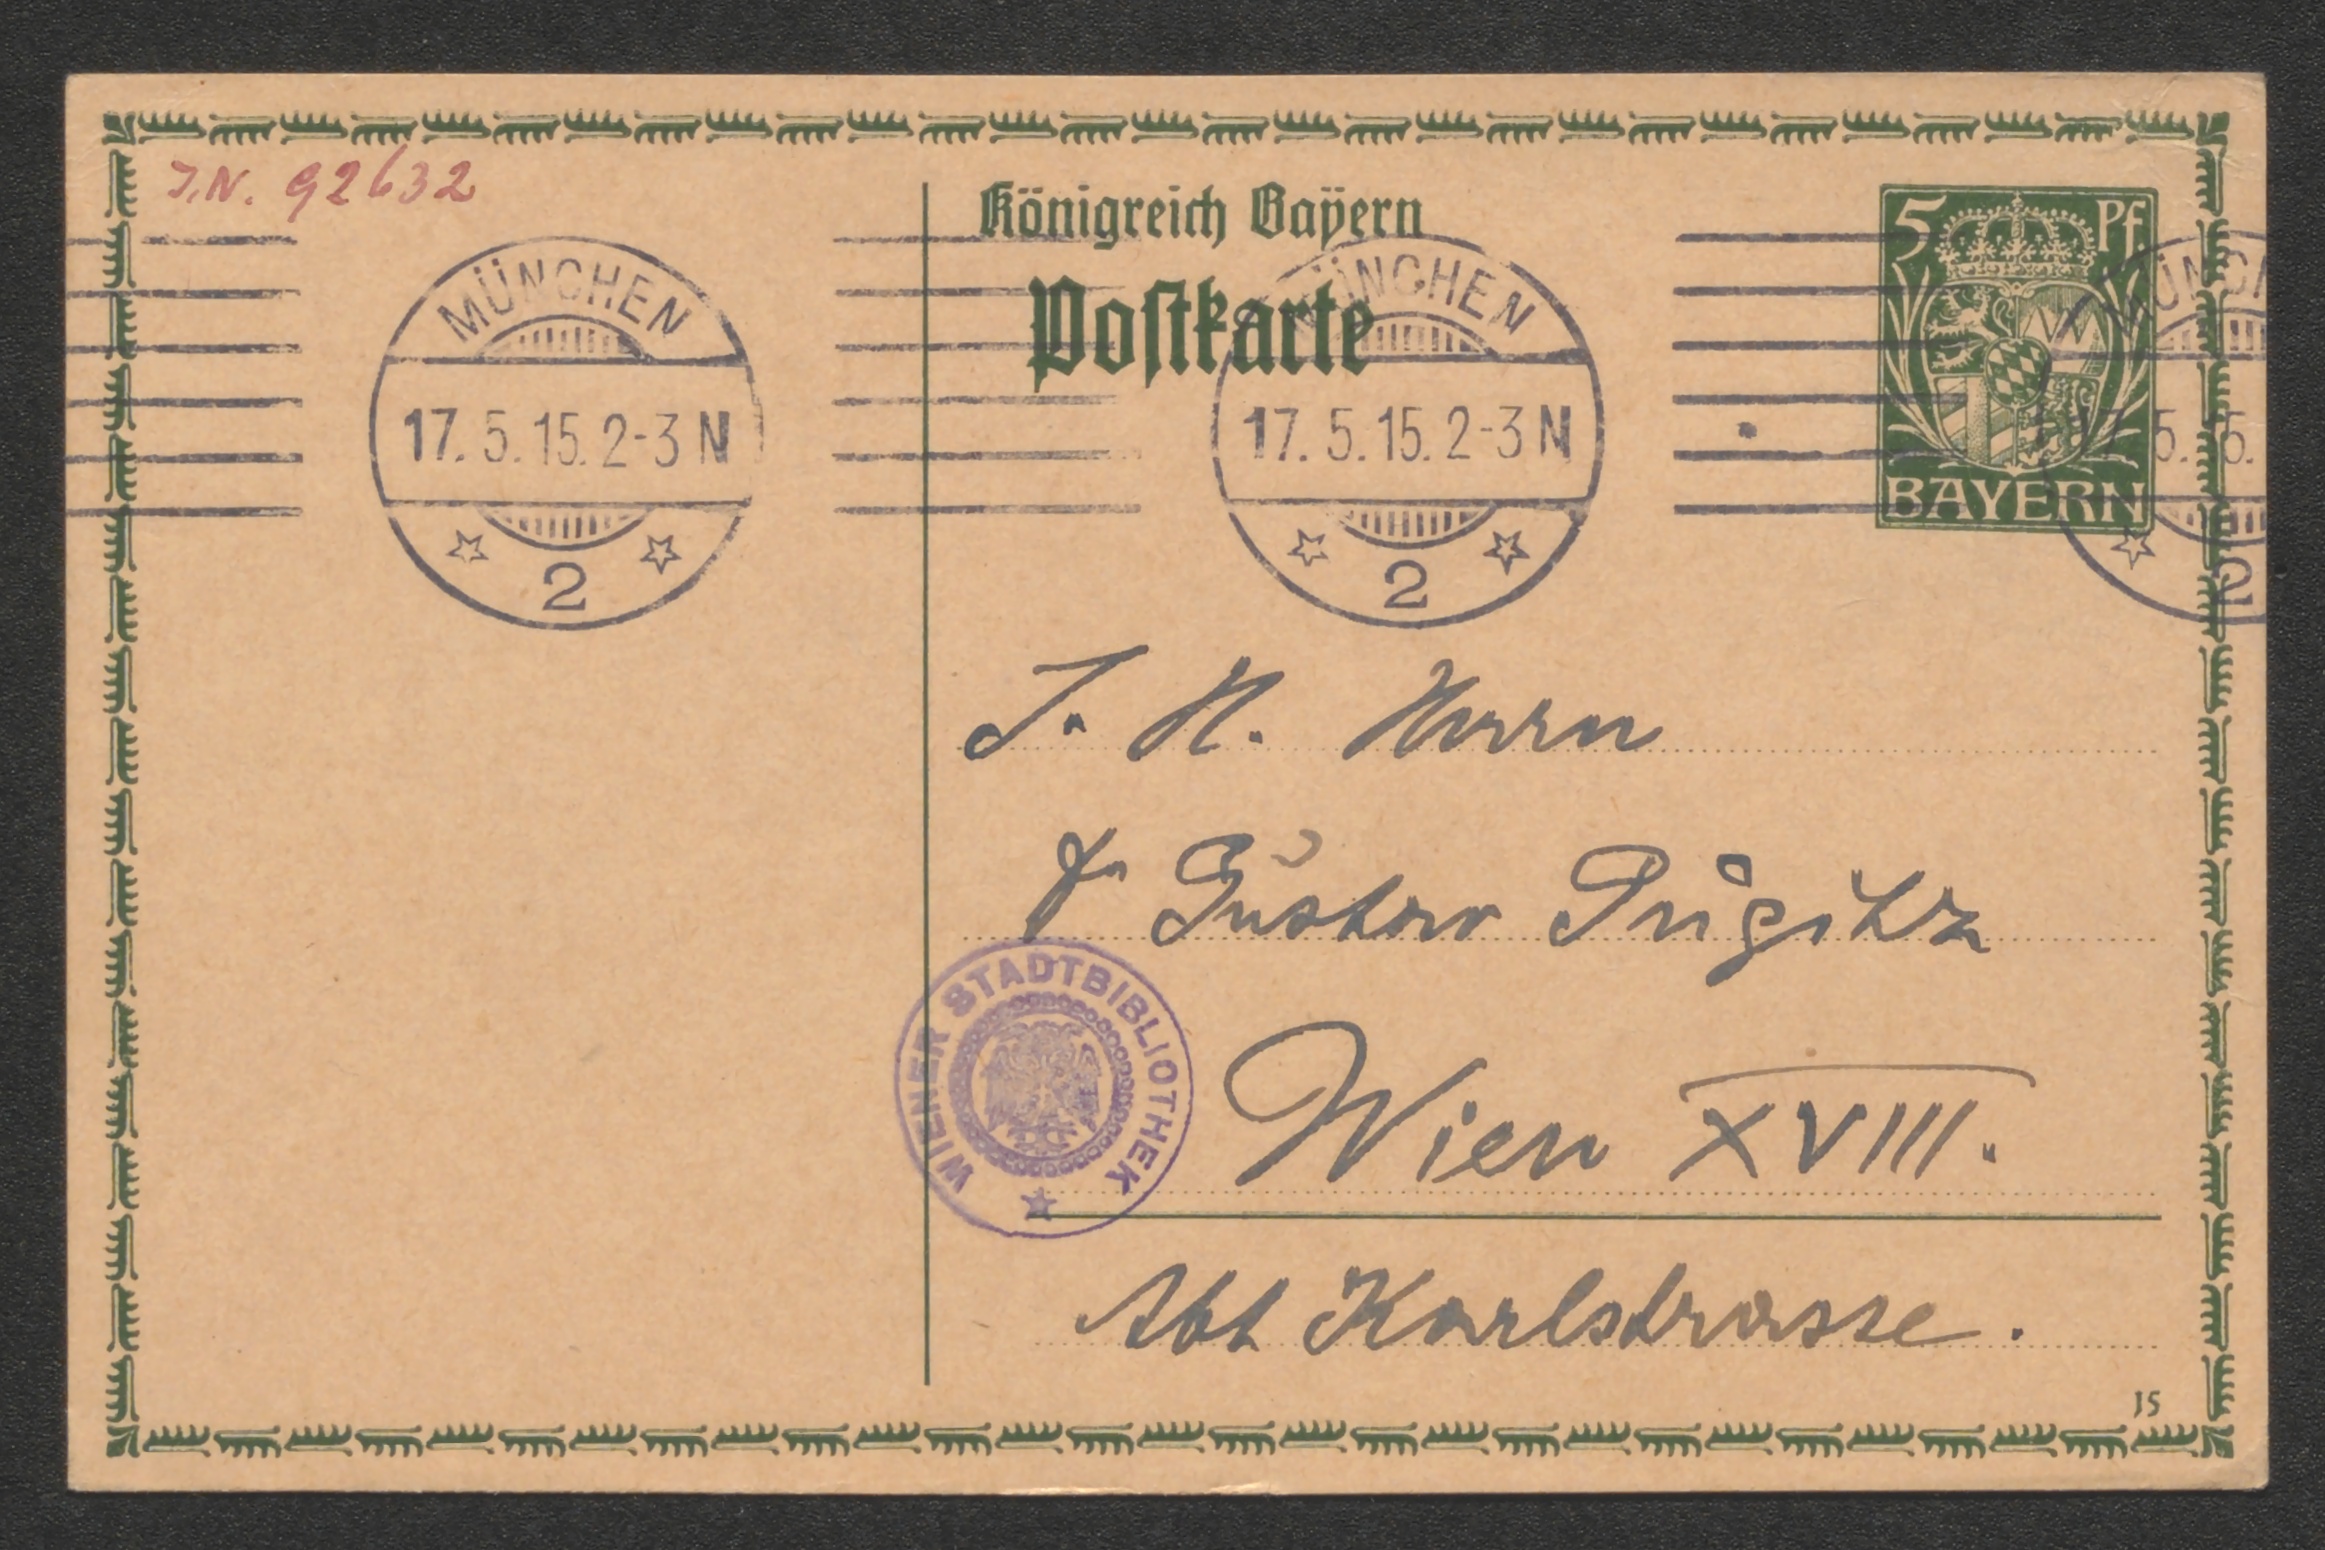 J.N. 92632
Königreich Bayern
Postkarte
5 Pf
BAYERN
MÜNCHEN
17.5.15. 2-3 N
2
MÜNCHEN
17.5.15. 2-3 N
2
MÜNCH
17.5.15.
2
S. H. Herrn
Gustav Gugitz
Wien XVIII.
Abt Karlstrasse.
WIENER STADTBIBLIOTHEK
15